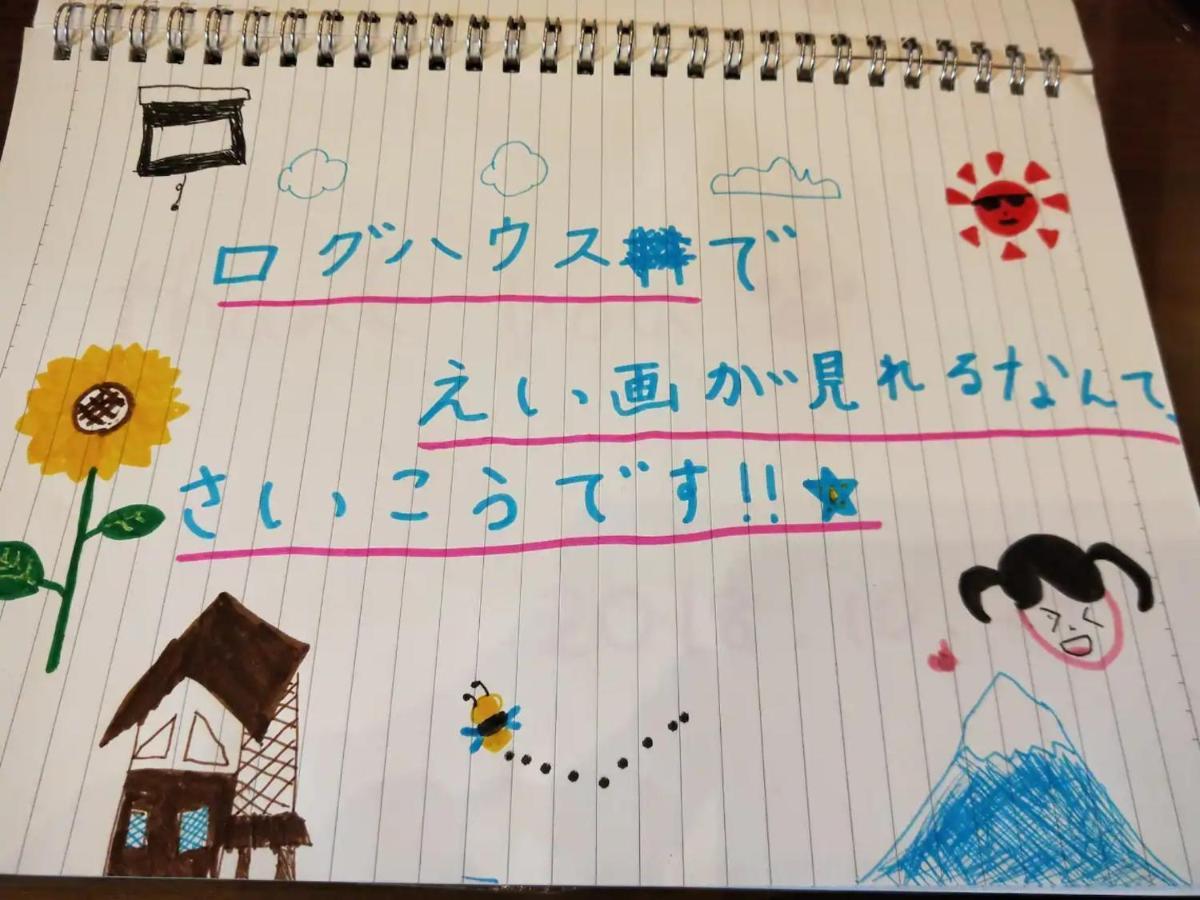 ログハウスで
えい画が見れるなんて、
さいこうです!!☆